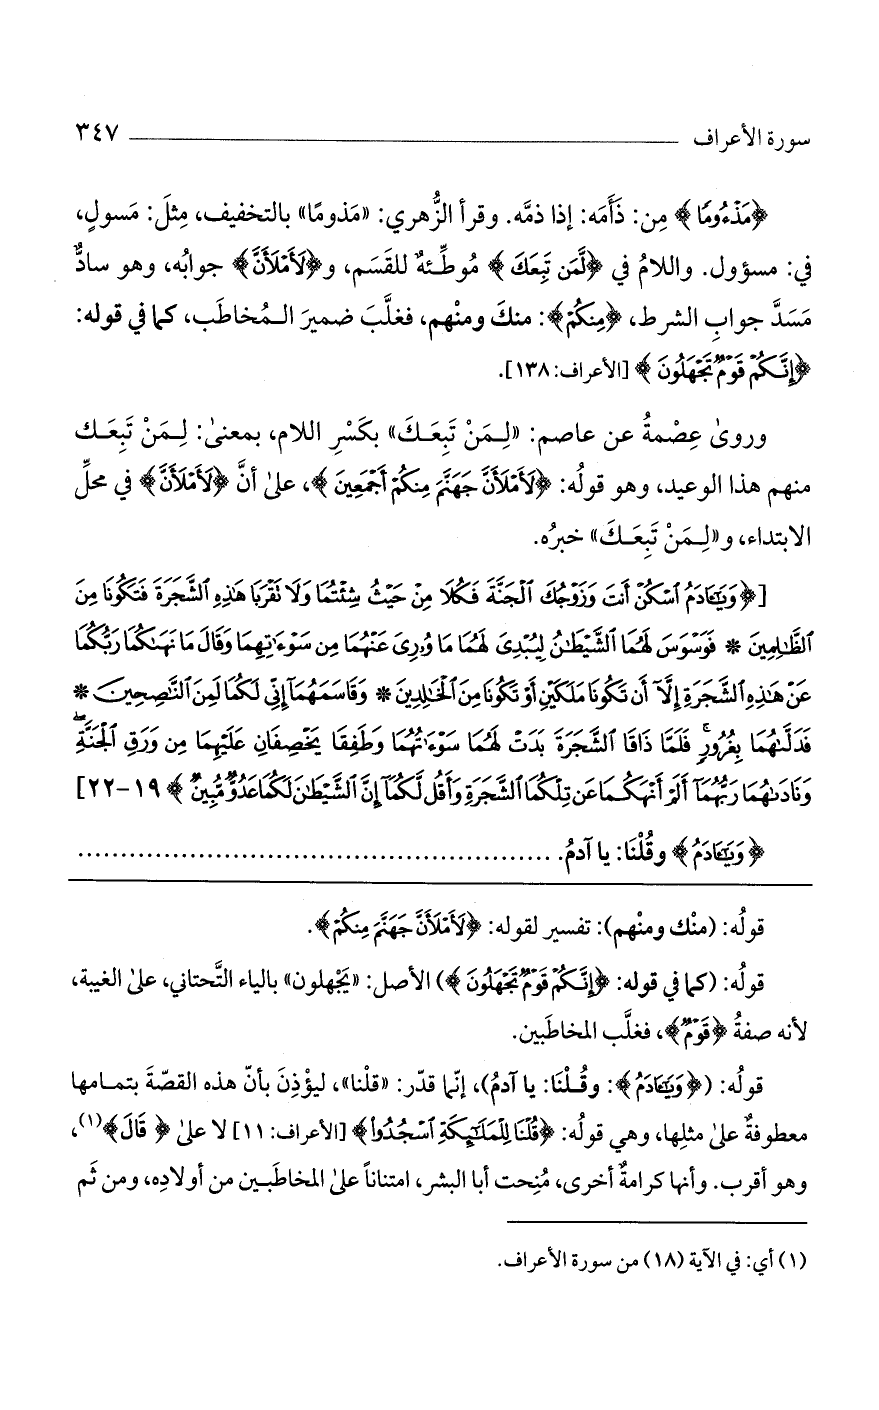 سورة الأعراف ــــــــــــــــــــ ٣٤٧
﴿مَذْءُومًا﴾ مِن: ذَأَمَه: إذا ذمَّه. وقرأ الزُّهري: «مَذومًا» بالتخفيف، مِثلَ: مَسولٍ،
في: مسؤول. واللامُ في ﴿لَّمَن تَبِعَكَ﴾ مُوطِّئةٌ للقَسَم، و﴿لَأَمْلَأَنَّ﴾ جوابُه، وهو سادٌّ
مَسَدَّ جوابِ الشرط، ﴿مِنكُمْ﴾: منكَ ومنْهم، فغلَّبَ ضميرَ الـمُخاطَب، كما في قوله:
﴿إِنَّكُمْ قَوْمٌ تَجْهَلُونَ﴾ [الأعراف: ١٣٨].
وروىٰ عِصْمةُ عن عاصم: «لِـمَنْ تَبِعَـكَ» بكَسْرِ اللام، بمعنىٰ: لِـمَنْ تَبِعَـك
منهم هذا الوعيد، وهو قولُه: ﴿لَأَمْلَأَنَّ جَهَنَّمَ مِنكُمْ أَجْمَعِينَ﴾، علىٰ أنَّ ﴿لَأَمْلَأَنَّ﴾ في محلِّ
الابتداء، و«لِـمَنْ تَبِعَـكَ» خبرُه.
[﴿وَيَٰٓـَٔادَمُ ٱسْكُنْ أَنتَ وَزَوْجُكَ ٱلْجَنَّةَ فَكُلَا مِنْ حَيْثُ شِئْتُمَا وَلَا تَقْرَبَا هَٰذِهِ ٱلشَّجَرَةَ فَتَكُونَا مِنَ
ٱلظَّٰلِمِينَ * فَوَسْوَسَ لَهُمَا ٱلشَّيْطَٰنُ لِيُبْدِىَ لَهُمَا مَا وُۥرِىَ عَنْهُمَا مِن سَوْءَٰتِهِمَا وَقَالَ مَا نَهَىٰكُمَا رَبُّكُمَا
عَنْ هَٰذِهِ ٱلشَّجَرَةِ إِلَّآ أَن تَكُونَا مَلَكَيْنِ أَوْ تَكُونَا مِنَ ٱلْخَٰلِدِينَ * وَقَاسَمَهُمَآ إِنِّى لَكُمَا لَمِنَ ٱلنَّٰصِحِينَ *
فَدَلَّىٰهُمَا بِغُرُورٍ ۚ فَلَمَّا ذَاقَا ٱلشَّجَرَةَ بَدَتْ لَهُمَا سَوْءَٰتُهُمَا وَطَفِقَا يَخْصِفَانِ عَلَيْهِمَا مِن وَرَقِ ٱلْجَنَّةِ ۖ
وَنَادَىٰهُمَا رَبُّهُمَآ أَلَمْ أَنْهَكُمَا عَن تِلْكُمَا ٱلشَّجَرَةِ وَأَقُل لَّكُمَآ إِنَّ ٱلشَّيْطَٰنَ لَكُمَا عَدُوٌّ مُّبِينٌ﴾ ١٩-٢٢]
﴿وَيَٰٓـَٔادَمُ﴾ وقُلْنا: يا آدمُ. ........................................
قولُه: (منْك ومنْهم): تفسير لقوله: ﴿لَأَمْلَأَنَّ جَهَنَّمَ مِنكُمْ﴾.
قولُه: (كما في قوله: ﴿إِنَّكُمْ قَوْمٌ تَجْهَلُونَ﴾) الأصل: «يَجْهلون» بالياء التَّحتاني، علىٰ الغيبة،
لأنه صفةُ ﴿قَوْمٌ﴾، فغلَّب المخاطَبين.
قولُه: (﴿وَيَٰٓـَٔادَمُ﴾: وقُـلْنَا: يا آدمُ)، إنّما قدّر: «قلْنا»، ليؤْذِنَ بأنّ هذه القصّةَ بتمـامها
معطوفةٌ علىٰ مثلِها، وهي قولُه: ﴿قُلْنَا لِلْمَلَٰٓئِكَةِ ٱسْجُدُوا۟﴾ [الأعراف: ١١] لا علىٰ ﴿قَالَ﴾(١)،
وهو أقرب. وأنها كرامةٌ أخرى، مُنِحت أبا البشر، امتناناً علىٰ المخاطَبـين من أولادِه، ومن ثَم
(١) أي: في الآية (١٨) من سورة الأعراف.